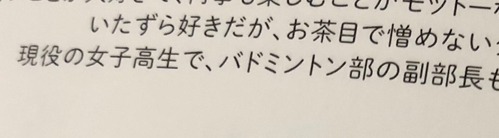 も楽しむことがモットー
いたずら好きだが、お茶目で憎めない
現役の女子高生で、バドミントン部の副部長も